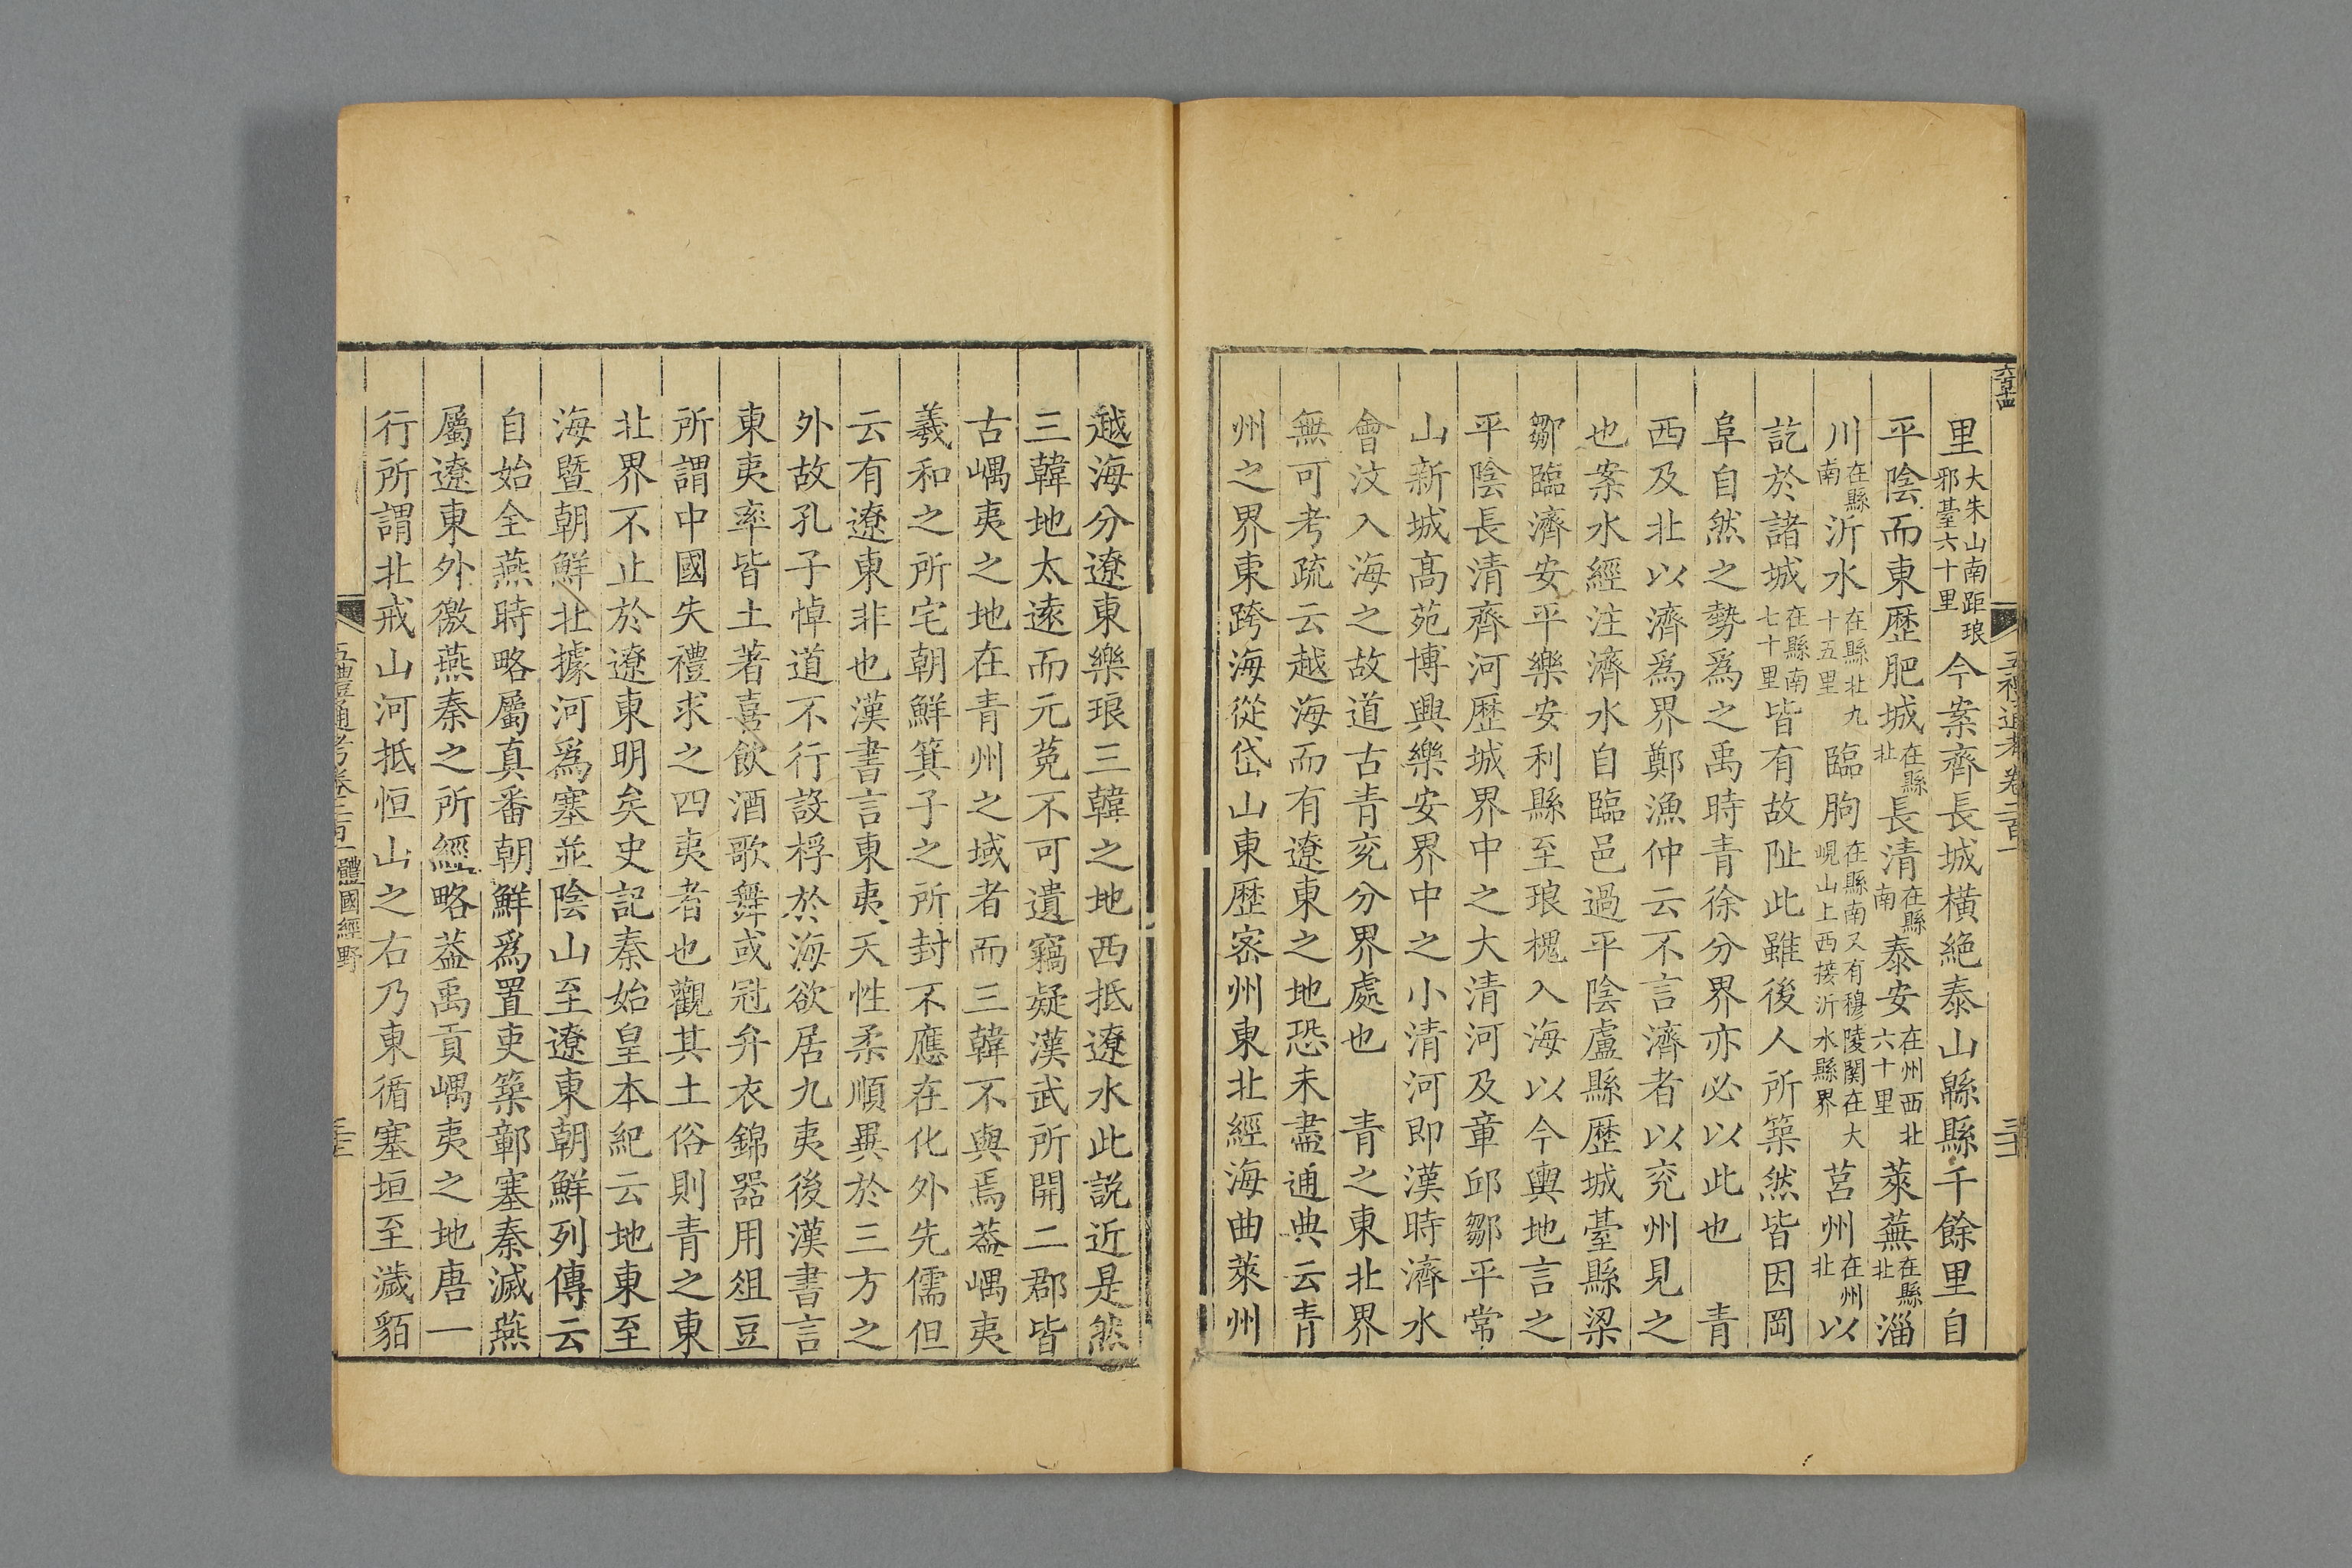 里大朱山南距琅邪臺六十里今案齊長城橫絶泰山緜縣千餘里自
平陰而東歴肥城在縣北長清在縣南泰安在州西北六十里萊蕪在縣北淄
川在縣南沂水在縣北九十五里臨朐在縣南又有穆陵關在大峴山上西接沂水縣界莒州在州北以
訖於諸城在縣南七十里皆有故阯此雖後人所築然皆因岡
阜自然之勢爲之禹時青徐分界亦必以此也　青
西及北以濟爲界鄭漁仲云不言濟者以兖州見之
也案水經注濟水自臨邑過平陰盧縣歴城臺縣梁
鄒臨濟安平樂安利縣至琅槐入海以今輿地言之
平陰長清齊河歴城界中之大清河及章邱鄒平常
山新城高苑博興樂安界中之小清河即漢時濟水
會汶入海之故道古青兖分界處也　青之東北界
無可考疏云越海而有遼東之地恐未盡通典云青
州之界東跨海從岱山東歴密州東北經海曲萊州
越海分遼東樂琅三韓之地西抵遼水此説近是然
三韓地太逺而元菟不可遺竊疑漢武所開二郡皆
古嵎夷之地在青州之域者而三韓不與焉葢嵎夷
羲和之所宅朝鮮箕子之所封不應在化外先儒但
云有遼東非也漢書言東夷天性柔順異於三方之
外故孔子悼道不行設桴於海欲居九夷後漢書言
東夷率皆土著喜飲酒歌舞或冠弁衣錦器用俎豆
所謂中國失禮求之四夷者也觀其土俗則青之東
北界不止於遼東明矣史記秦始皇本紀云地東至
海暨朝鮮北據河爲塞並陰山至遼東朝鮮列傳云
自始全燕時略屬真番朝鮮爲置吏築鄣塞秦滅燕
屬遼東外徼燕秦之所經略葢禹貢嵎夷之地唐一
行所謂北戒山河抵恒山之右乃東循塞垣至濊貊
體國經野